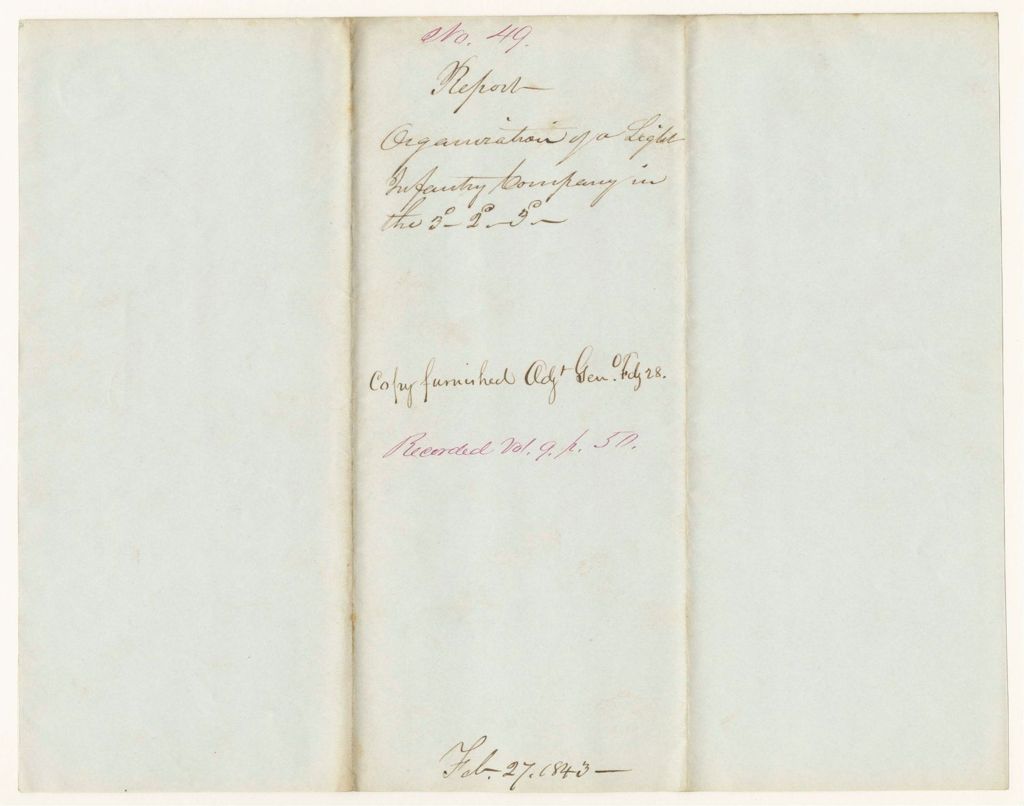 No. 49.
Report
Organization of a Light
Infantry Company in
the 3d 2d 3d
Copy furnished Adjt Genl Feby 28.
Recorded Vol. 9. p. 50.
Feb. 27. 1843